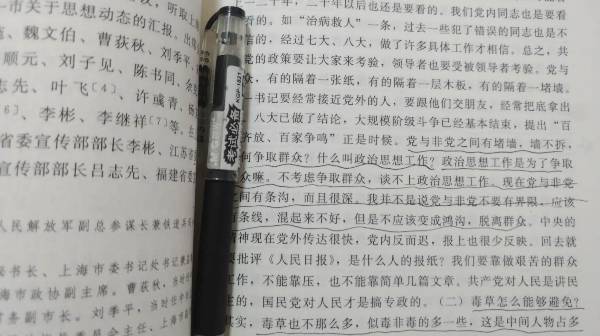 市关于思想动态的汇报。出
魏文伯、曹荻秋、刘季平、
顺元、刘子见、陈书同、余
志先、叶飞〔4〕、许彧青、杨
〔6〕、李彬、李继祥〔7〕等。在
省委宣传部部长李彬、江苏省
宣传部部长吕志先、福建省委
人民解放军副总参谋长兼铁道兵
书长、上海市委书记处书记兼
海市政协副主席。曹荻秋，当时
书记。刘季平，当时任中
员会主任、上海
二十年，二十年以后也还是要看的。我们党内同志也是要看
看的。如“治病救人”一条，过去一些犯了错误的同志也是不
信的，经过七大、八大，做了许多具体工作才相信。总之，共
党的政策要让大家来考验，领导者也要受被领导者考验。党与
众，有的隔着一张纸，有的隔着一层木板，有的隔着一堵墙。
一书记要经常接近党外的人，要跟他们交朋友，经常把底拿出
八大已做了结论，大规模阶级斗争已经基本结束，提出“百
齐放、百家争鸣”正是时候。党与非党之间有堵墙，墙不拆，
何争取群众？什么叫政治思想工作？政治思想工作是为了争取
众嘛。不考虑争取群众，谈不上政治思想工作。现在党与非党
之间有条沟，而且很深。我并不是说党与非党不要有界限，应该
有条线，混起来不好，但是不应该变成鸿沟，脱离群众。中央的
精神现在党外传达很快，党内反而迟，报上也很少反映。回去就
要批评《人民日报》，是什么人的报纸？我们要靠做艰苦的群众
工作，不能靠压，也不能靠简单几篇文章。共产党对人民是讲民
主的，国民党对人民才是搞专政的。（二）毒草怎么能够避免？
其实，毒草也不那么多，似毒非毒的多一些，这是中间人物占多